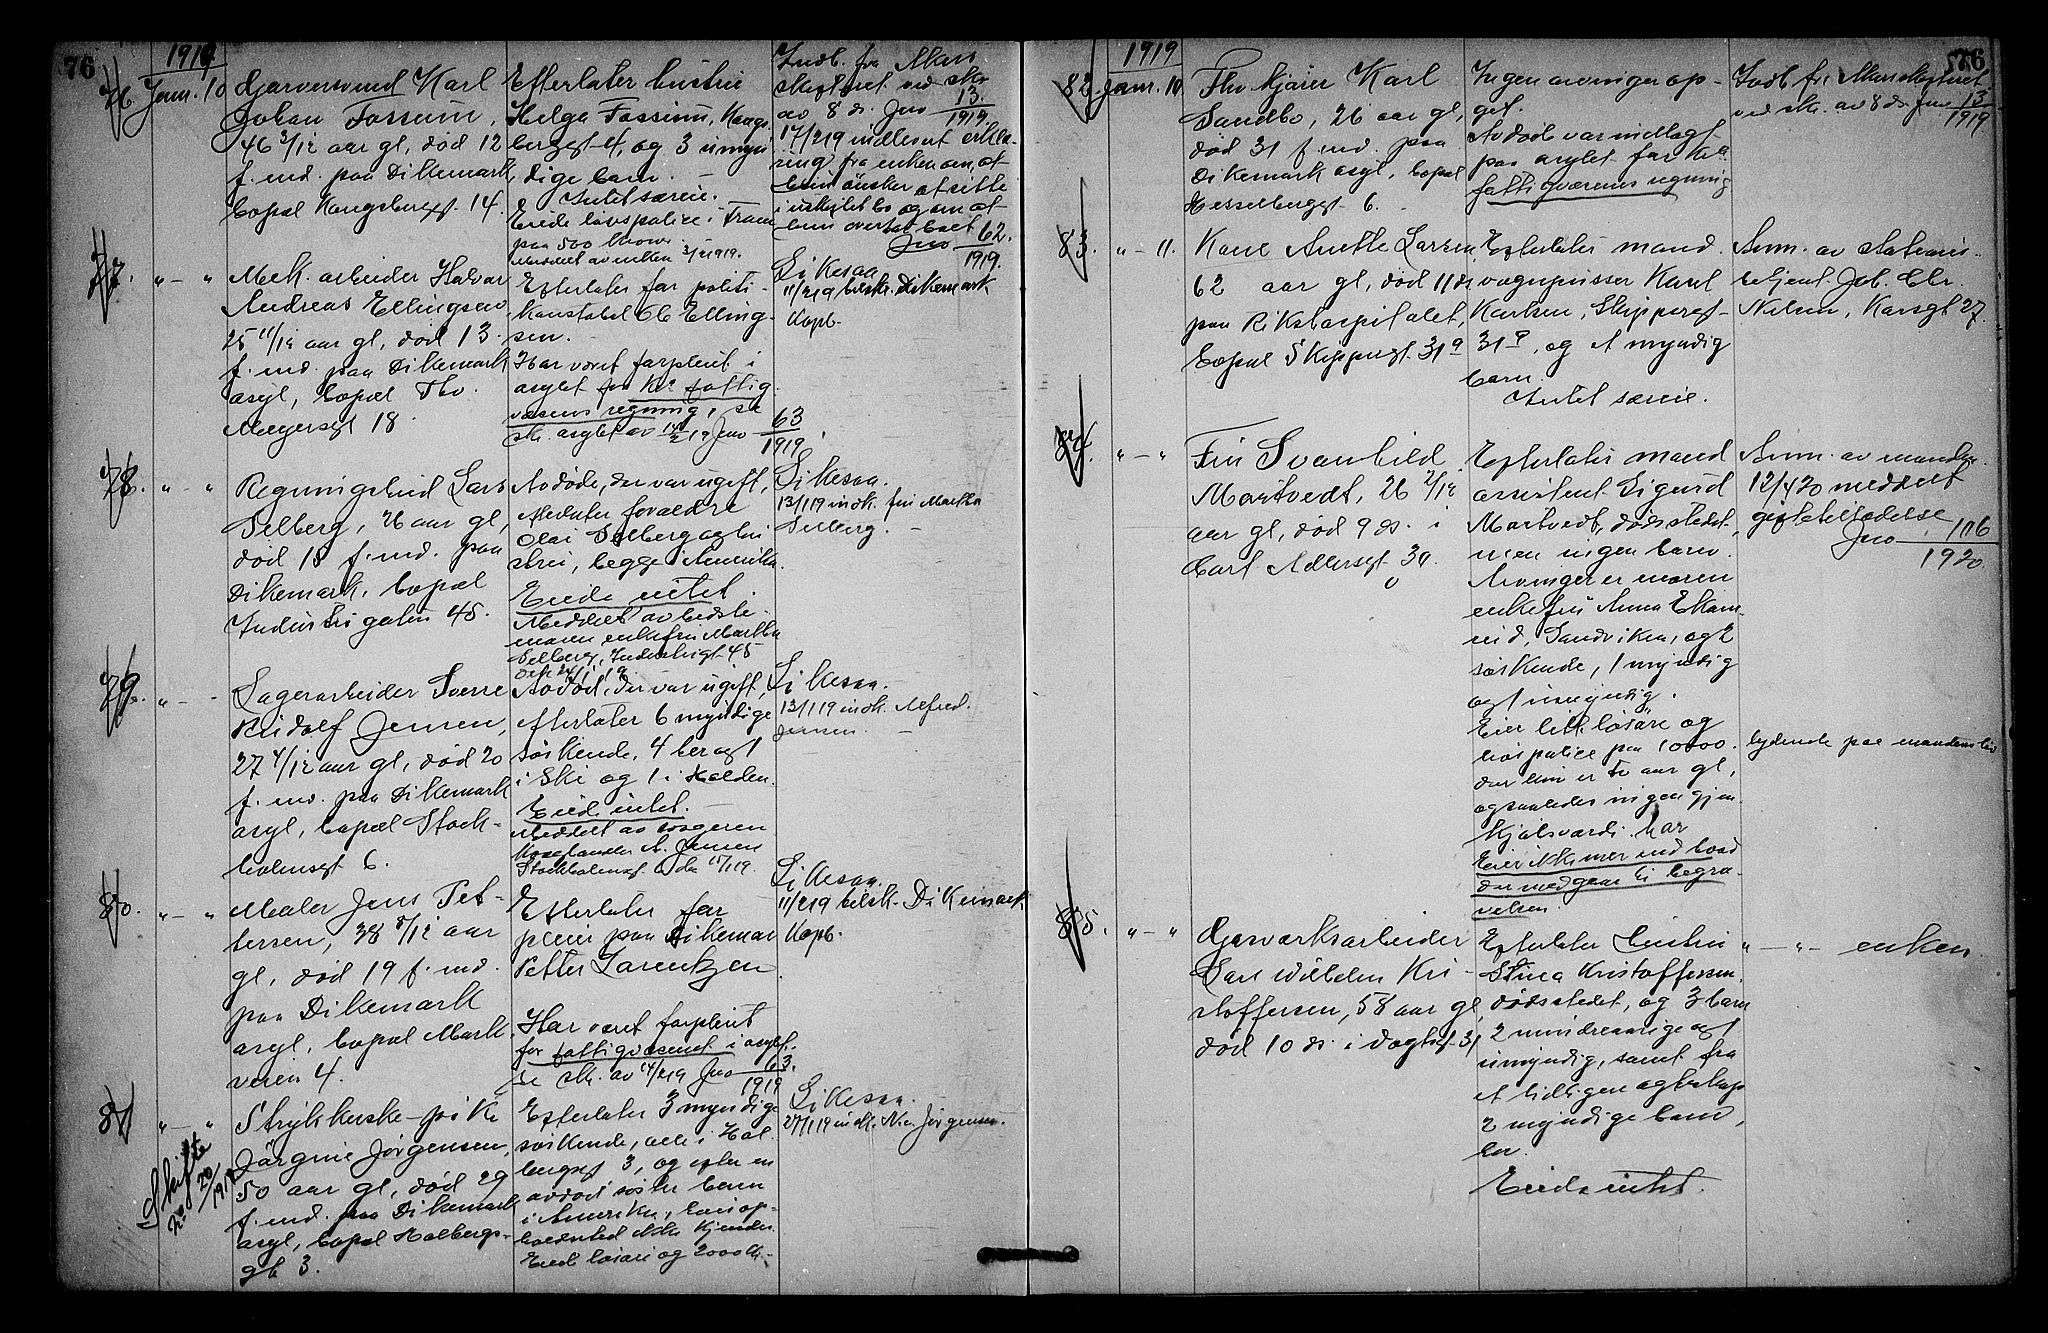 76
1919
76.
Jan. 10
Garversvend Karl
Johan Fossum,
46 3/12 aar gl, død 12
f. md. paa Dikemark
bopæl Kongsberggt. 14.
Efterlater hustru
Helga Fossum, Kongs
berggt 4, og 3 umyn
dige barn. –
Intet særeie.
Eiede livspolice i Fram
paa 500 kroner.
Meddelt av enken 3/2 1919.
Indb. fra Akers
skifteret ved skr
av 8 ds. Jno 13/1919
17/2 19 indlevert erklæ-
ring fra enken om at
hun ønsker at sitte
i uskiftet bo og om at
hun overtar boet
Jno 62./1919.
77.
" – "
Mek. arbeider Halvar
Andreas Ellingsen
25 11/12 aar gl, død 13.
f. md. paa Dikemark
asyl, bopæl Thv.
Meyersgt 18.
Efterlater far politi-
konstabel Ole Elling-
sen. –
Har været forpleiet i
asylet for Kra fattig
væsens regning, se
skr. asylet av 14/2 19 Jno 63/1919.
Likesaa
11/2 19 tilskr. Dikemark
Hosp.
78.
" – "
Regningsbud Lars
Selberg, 26 aar gl,
død 15 f. md. paa
Dikemark, bopæl
Industrigaten 45.
Avdøde, der var ugift,
efterlater forældre
Olai Selberg og hu
stru, begge i Amerika.
Eiede intet.
Meddelt av bedste-
moren enkefru Martha
Selberg, Industrigt 45
Likesaa.
13/1 19 indk. fru Martha
Selberg. –
79.
" – "
Lagerarbeider Sverre
Rudolf Jensen,
27 4/12 aar gl, død 20
f. md. paa Dikemark
asyl, bopæl Stock-
holmsgt 6.
Avdød, der var ugift,
efterlater 6 myndige
søskende, 4 her og 1
i Ski og 1 i Halden.
Eiede intet. –
Meddelt av svogeren
A. Jensen
Stockholmsgt. 6 den 15/1 19.
Likesaa. –
13/1 19 indk. Alfred
Jensen. –
80.
" – "
Maler Jens Pet-
tersen, 38 8/12 aar
gl, død 19 f. md.
paa Dikemark
asyl, bopæl Mark
veien 4.
Efterlater far
pleier paa Dikemar
Petter Lorentzen
Har været forpleiet
for fattigvæsenet i asylet.
se skr. av 14/2 19 Jno 63./1919
Likesaa.
11/2 19 tilsk. Dikemark
Hosp.
81
" – "
Skifte
No 20/1919
Strykkerske-pike
Jørgine Jørgensen,
50 aar gl, død 29
f. md. paa Dikemark
asyl, bopæl Holbergs-
gt 3.
Efterlater 3 myndige
søskende, alle i Hol
bergsgt 3, og efter en
avdød søster barn
i Amerika, hvis op-
holdssted ikke kjendes.
Eiede løsøre og 2000 kr. –
Likesaa. –
27/1 19 indk. Jørgensen.
76
1919
82.
Jan. 10
Thv kjører Karl
Sandbo, 26 aar gl,
død 31 f. md. paa
Dikemark asyl, bopæl
Hesselberggt. 6.
Ingen arvinger op-
git.
Avdøde var indlagt
paa asylet for Kra
fattigvæsens regning
Indb. fra Akers skifteret
ved skr. av 8 ds. Jno 13/1919
83.
" – 11.
Karen Anette Larsen
62 aar gl, død 11 ds
paa Rikshospitalet,
bopæl Skippergt. 31a
Efterlater mand
vognpusser Karl
Karlsen, Skippergt-
31a, og et myndig
barn.
Intet særeie.
Anm. av stations-
betjent Joh. Chr.
Nilsen, Karsgt 27.
84.
" – "
Fru Svanhild
Martvedt, 26 2/12
aar gl, død 9 ds. i
Carl Adlersgt 30.
Efterlater mand
assistent Sigurd
Martvedt, dødsstedet,
men ingen barn.
Arvinger er moren
enkefru Anna
Sandviken, og 2
søskende, 1 myndig
og 1 umyndig.
Eier litt løsøre og
livspolice paa 10000.
der hun er aar gl,
og saaledes ingen gjen
kjøbsværdi har
Eier ikke mer end hvad
der medgaar til begra-
velsen.
Anm. av manden.
12/4 20 meddelt
giftetilladelse
Jno 106/1920
lydende paa mandens liv
85.
" – "
Gasværksarbeider
Carl Wilhelm Kri-
stoffersen, 58 aar gl,
død 10 ds. i Vogtsgt. 31
Efterlater hustru
Stina Kristoffersen,
dødsstedet, og 3 barn
2 mindreaarige og 1
umyndig, samt fra
et tidligere egteskap
2 myndige barn,
her.
Eiede intet.
" – " – enken.